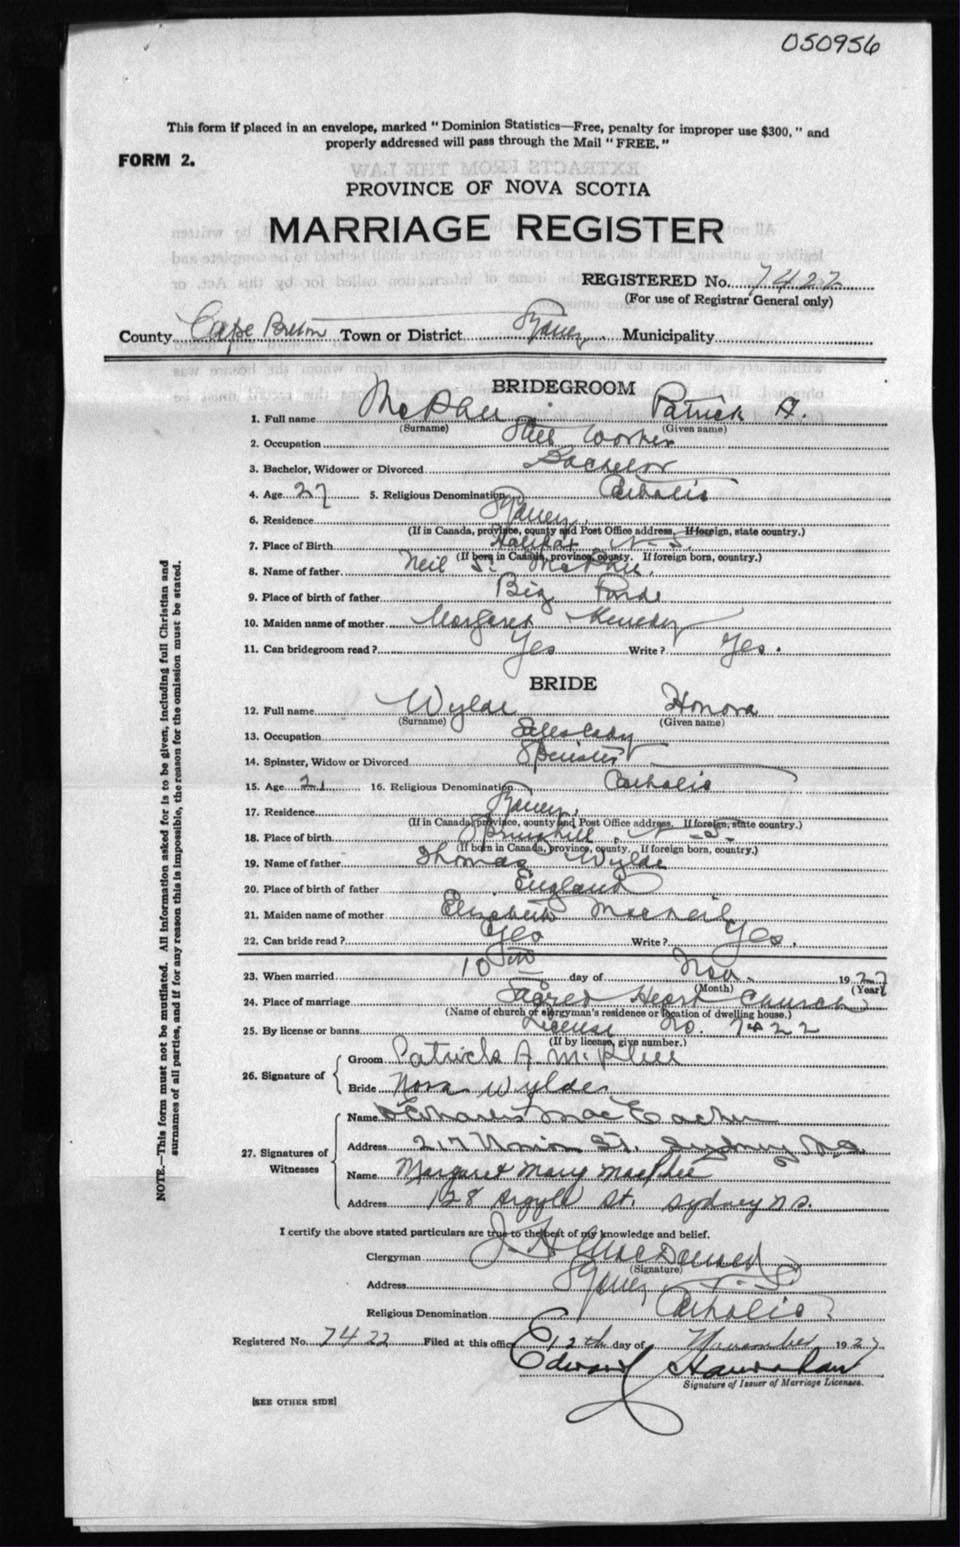 050956
This form if placed in an envelope, marked "Dominion Statistics—Free, penalty for improper use $300," and
properly addressed will pass through the Mail "FREE."
FORM 2.
PROVINCE OF NOVA SCOTIA
MARRIAGE REGISTER
REGISTERED No. 7422
(For use of Registrar General only)
County Cape Breton Town or District Sydney Municipality
BRIDEGROOM
1. Full name McPhee Patrick A.
(Surname) (Given name)
2. Occupation Steel Worker
3. Bachelor, Widower or Divorced Bachelor
4. Age 27 5. Religious Denomination Catholic
6. Residence Sydney
(If in Canada, province, county and Post Office address. If foreign, state country.)
7. Place of Birth Halifax N.S.
(If born in Canada, province, county. If foreign born, country.)
8. Name of father Neil S. McPhee.
9. Place of birth of father Big Pond
10. Maiden name of mother Margaret Kennedy
11. Can bridegroom read? Yes Write? Yes.
BRIDE
12. Full name Wylde Honora
(Surname) (Given name)
13. Occupation Saleslady
14. Spinster, Widow or Divorced Spinster
15. Age 21 16. Religious Denomination Catholic
17. Residence Sydney.
(If in Canada, province, county and Post Office address. If foreign, state country.)
18. Place of birth Springhill, N-S.
(If born in Canada, province, county. If foreign born, country.)
19. Name of father Thomas Wylde
20. Place of birth of father England
21. Maiden name of mother Elizabeth MacNeil
22. Can bride read? Yes Write? Yes.
23. When married 10th day of Nov. 1927
(Month) (Year)
24. Place of marriage Sacred Heart Church
(Name of church or clergyman's residence or location of dwelling house.)
25. By license or banns License No. 7422
(If by license, give number.)
26. Signature of
Groom Patrick A McPhee
Bride Nora Wylde
27. Signatures of Witnesses
Name Charles MacEachern
Address 217 Union St. Sydney N.S.
Name Margaret Mary MacPhee
Address 128 Argyle St. Sydney N.S.
I certify the above stated particulars are true to the best of my knowledge and belief.
Clergyman MacDonald
(Signature)
Address Sydney N.S.
Religious Denomination Catholic
Registered No. 7422 Filed at this office 12th day of November 1927
Edward Hanrahan
Signature of Issuer of Marriage Licenses.
[SEE OTHER SIDE]
NOTE.—This form must not be mutilated. All information asked for is to be given, including full Christian and
surnames of all parties, and if for any reason this is impossible, the reason for the omission must be stated.